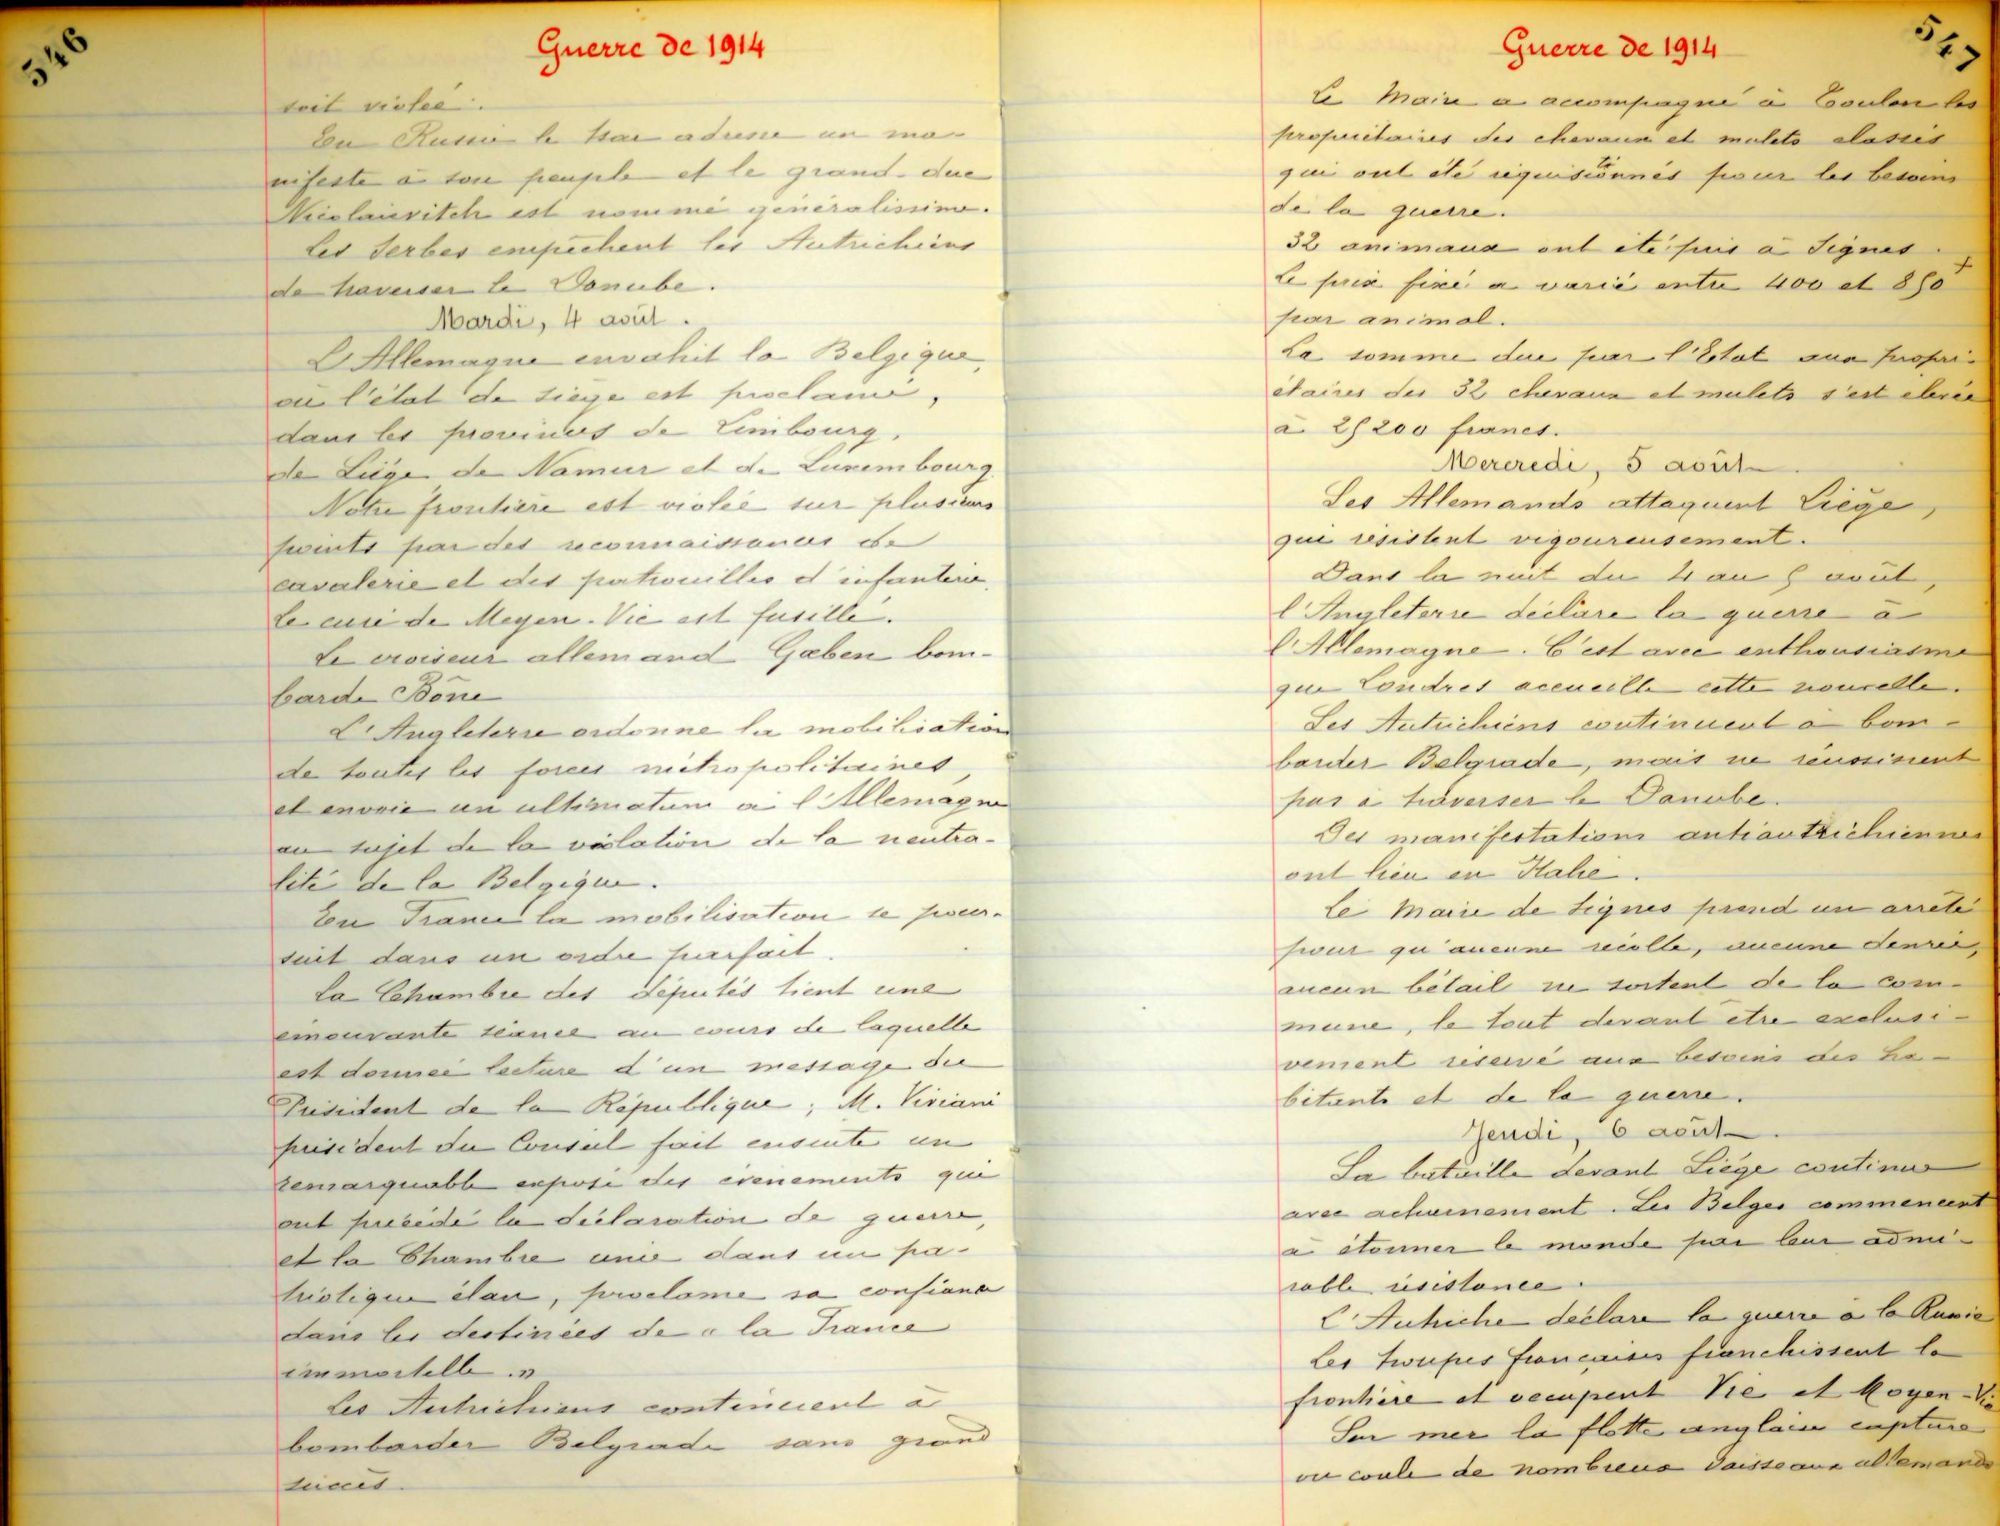 546
Guerre de 1914
soit violée.
En Russie le tsar adresse un ma-
nifeste à son peuple et le grand-duc
Nicolaievitch est nommé généralissime.
Les Serbes empêchent les Autrichiens
de traverser le Danube.
Mardi, 4 août.
L'Allemagne envahit la Belgique,
où l'état de siège est proclamé,
dans les provinces de Limbourg,
de Liège, de Namur et de Luxembourg
Notre frontière est violée sur plusieurs
points par des reconnaissances de
cavalerie et des patrouilles d'infanterie.
Le curé de Moyen-Vic est fusillé.
Le croiseur allemand Gœben bom-
barde Bône
L'Angleterre ordonne la mobilisation
de toutes les forces métropolitaines,
et envoie un ultimatum à l'Allemagne
au sujet de la violation de la neutra-
lité de la Belgique.
En France la mobilisation se pour-
suit dans un ordre parfait.
La Chambre des députés tient une
émouvante séance au cours de laquelle
est donnée lecture d'un message du
Président de la République; M. Viviani
président du Conseil fait ensuite un
remarquable exposé des événements qui
ont précédé la déclaration de guerre,
et la Chambre unie dans un pa-
triotique élan, proclame sa confiance
dans les destinées de « la France
immortelle. »
Les Autrichiens continuent à
bombarder Belgrade sans grand
succès.
547
Guerre de 1914
Le Maire a accompagné à Toulon les
propriétaires des chevaux et mulets classés
qui ont été réquisitionnés pour les besoins
de la guerre.
32 animaux ont été pris à Signes.
Le prix fixé a varié entre 400 et 850 f
par animal.
La somme due par l'Etat aux propri-
étaires des 32 chevaux et mulets s'est élevée
à 25200 francs.
Mercredi, 5 août.
Les Allemands attaquent Liège,
qui résistent vigoureusement.
Dans la nuit du 4 au 5 août,
l'Angleterre déclare la guerre à
l'Allemagne. C'est avec enthousiasme
que Londres accueille cette nouvelle.
Les Autrichiens continuent à bom-
barder Belgrade, mais ne réussissent
pas à traverser le Danube.
Des manifestations antiautrichiennes
ont lieu en Italie.
Le Maire de Signes prend un arrêté
pour qu'aucune récolte, aucune denrée,
aucun bétail ne sortent de la com-
mune, le tout devant être exclusi-
vement réservé aux besoins des ha-
bitants et de la guerre.
Jeudi, 6 août.
La bataille devant Liège continue
avec acharnement. Les Belges commencent
à étonner le monde par leur admi-
rable résistance.
L'Autriche déclare la guerre à la Russie
Les troupes françaises franchissent la
frontière et occupent Vic et Moyen-Vic
Sur mer la flotte anglaise capture
ou coule de nombreux vaisseaux allemands